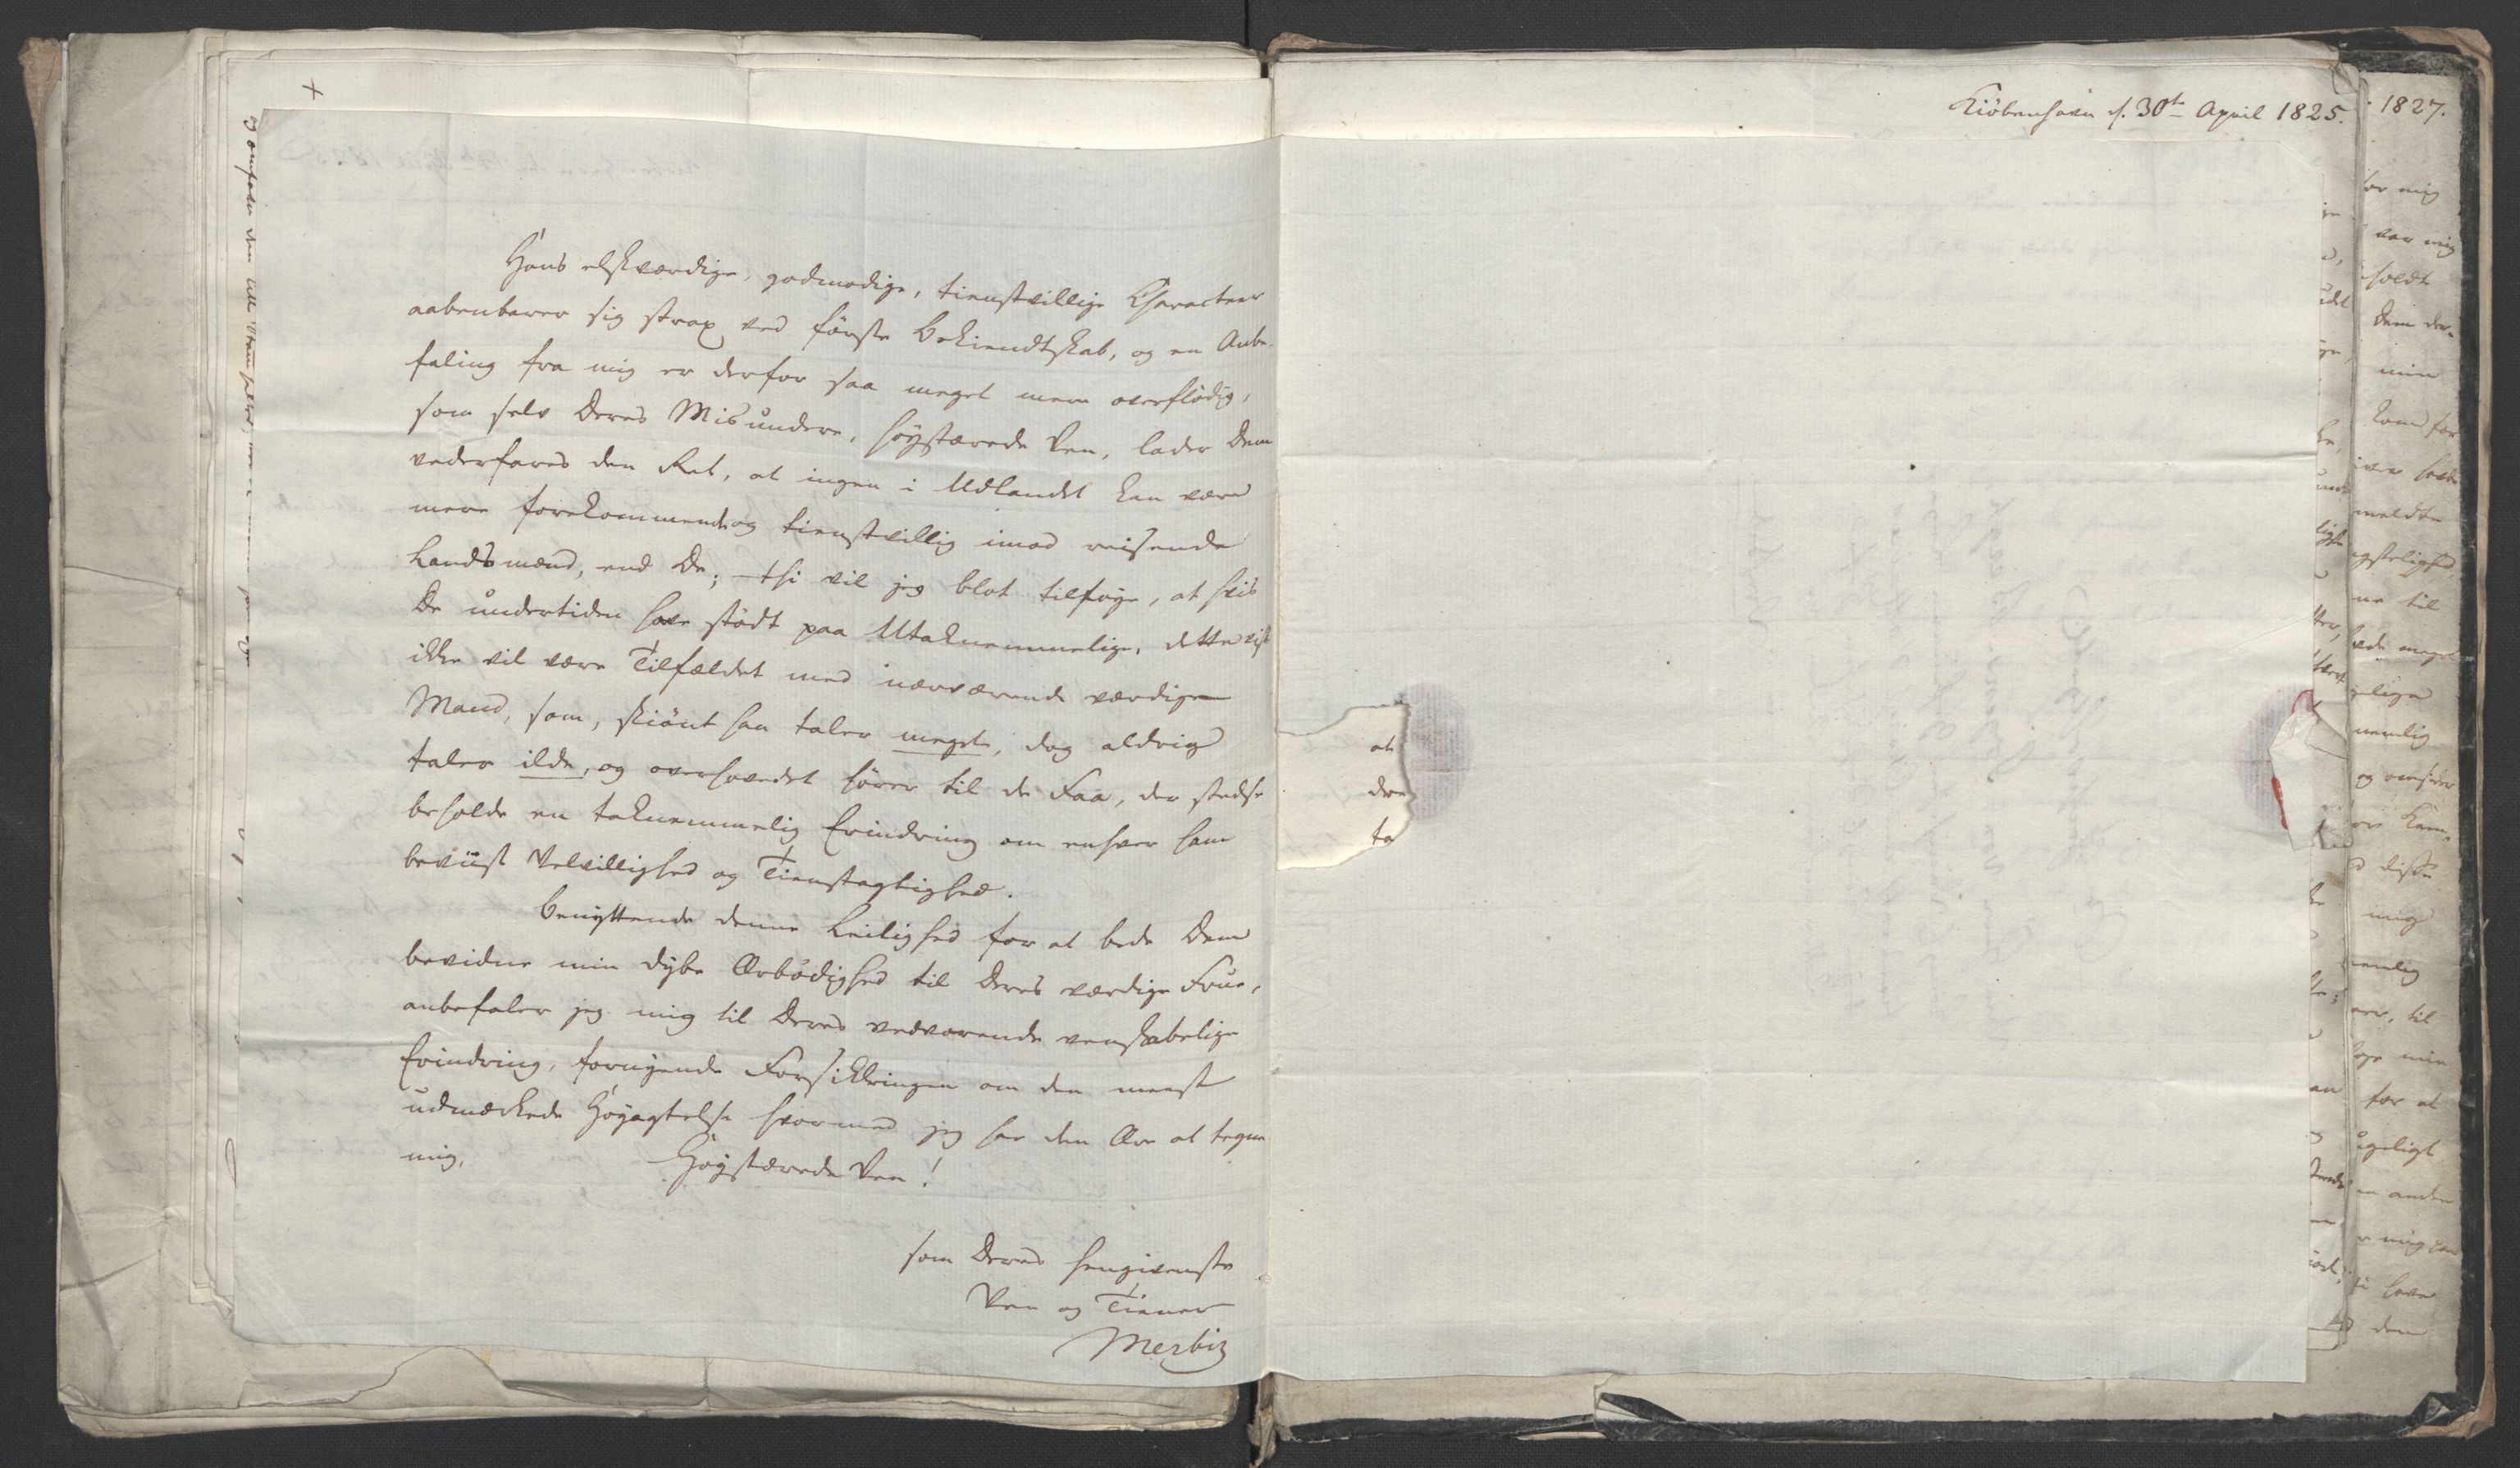 Hans elskværdige, godmodige, tienstvillige Characteer
aabenbarer sig strax ved första Bekiendtskab, og en Anbe-
faling fra mig er derfor saa meget mere overflödig,
som selv Deres Misundere, höystærede Ven, lader Dem
vederfares den Ret, at ingen i Udlandet kan være
mere forekommende og tienstvillig imod reisende
Landsmænd, end De; thi vil jeg blot tilföye, at hvis
De undertiden have stödt paa Utaknemmelige, dette vist
ikke vil være Tilfældet med nærværende værdige
Mand, som, skiönt han taler meget, dog aldrig
taler ilde, og overhovedet hörer til de Faa, der stedse
beholde en taknemmelig Erindring om enhver ham
beviist Velvillighed og Tienstagtighed.
Benyttende denne Leilighed for at bede Dem
bevidne min dybe Ærbödighed til Deres værdige Frue,
anbefaler jeg mig til Deres vedvarende venskabelige
Erindring, fornyende Forsikkringen om den meest
udmærkede Höyagtelse hvormed jeg har den Ære at tegne
mig,
Höystærede Ven!
som Deres hengivenste
Ven og Tiener
Merbitz
Kiöbenhavn d. 30te April 1825.
1827.
at
dre
ta
for mig
var mig
holdt
Dem der-
min
kom for
meldte
ne til
meget
nemlig
disse
mig
nemlig
til
min
for at
den